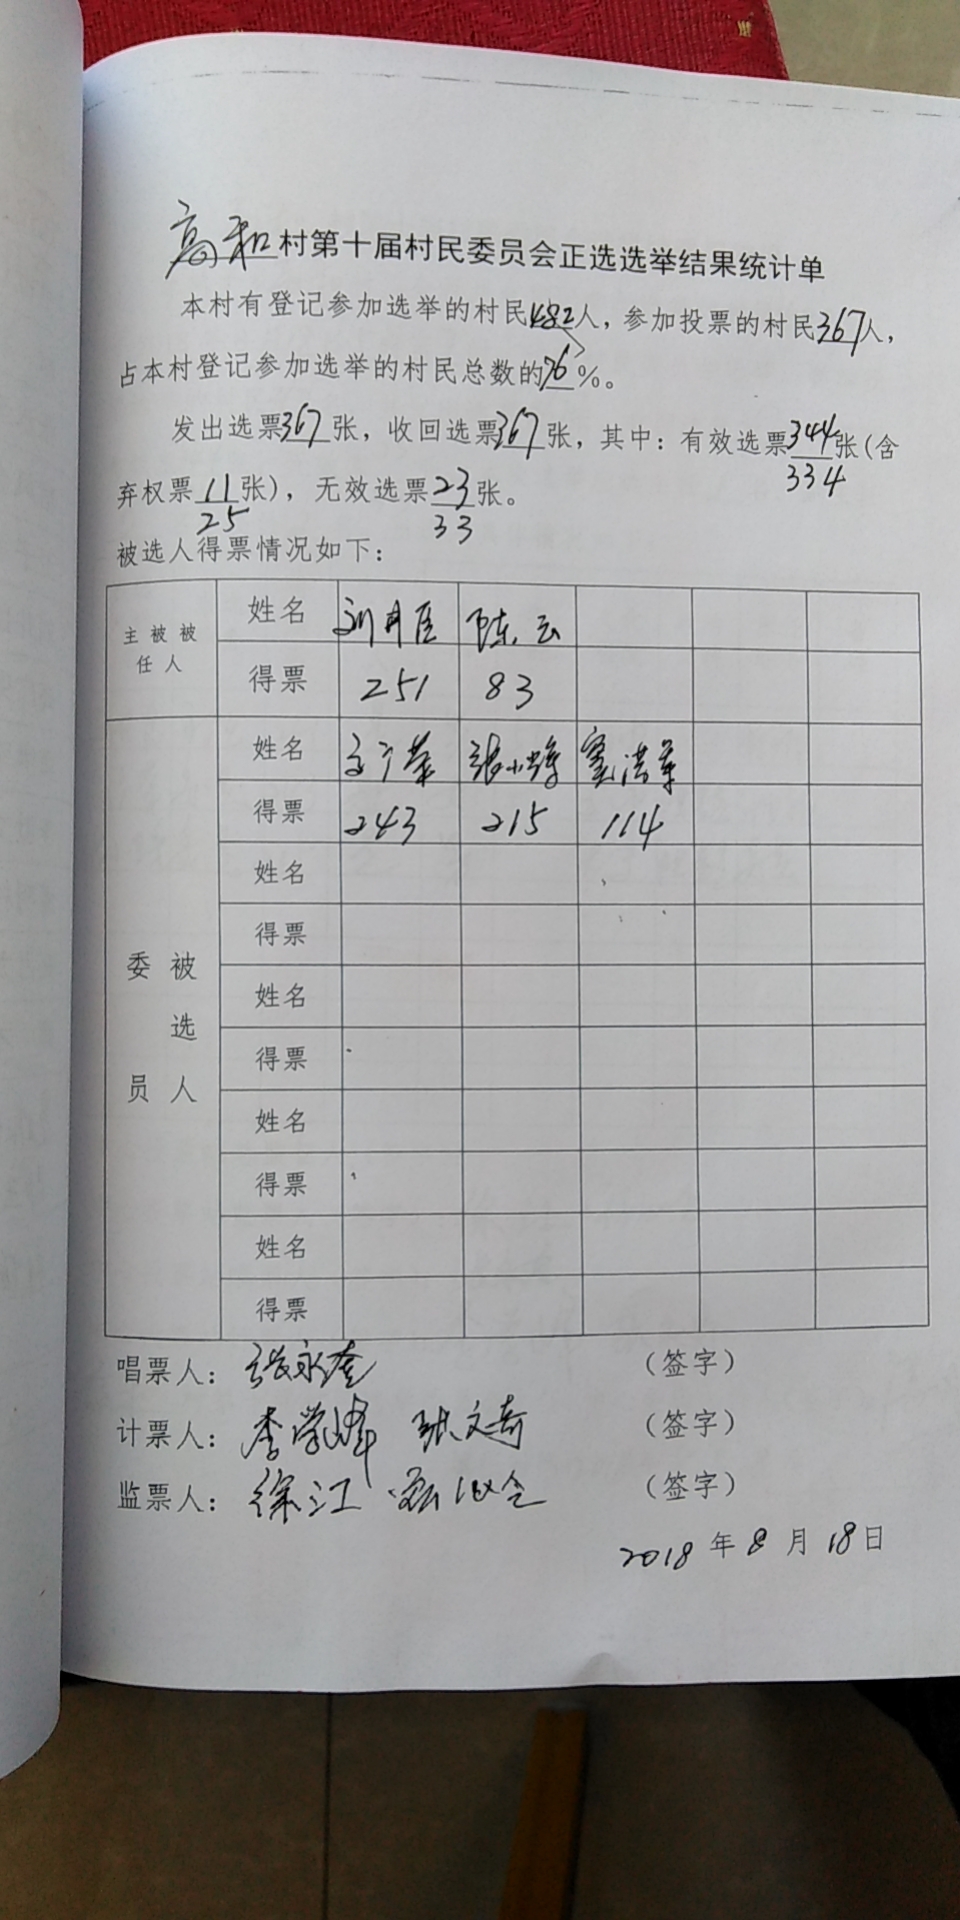 高和村第十届村民委员会正选选举结果统计单
本村有登记参加选举的村民482人，参加投票的村民367人，
占本村登记参加选举的村民总数的76%。
发出选票367张，收回选票367张，其中：有效选票344张(含
334
弃权票11张)，无效选票23张。
25 33
被选人得票情况如下：
主任 被选人 姓名 陈云
得票 251 83
姓名
得票 243 215 114
姓名
得票
委员 被选人
姓名
得票
姓名
得票
姓名
得票
唱票人：张永奎 （签字）
计票人：李学峰 张文奇 （签字）
监票人：徐江 （签字）
2018年8月18日